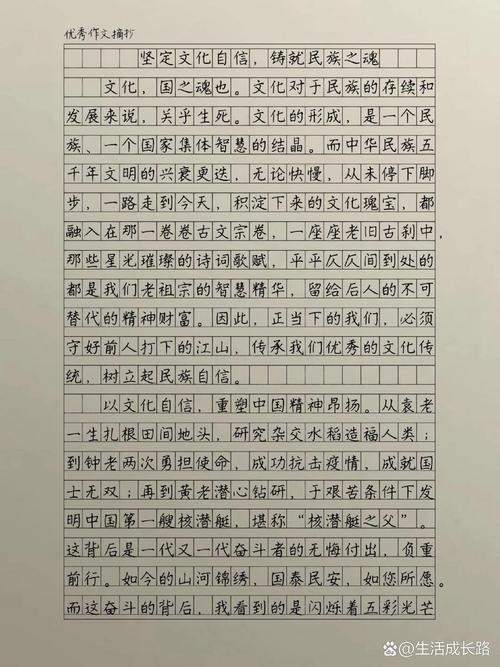 优秀作文摘抄
坚定文化自信，铸就民族之魂
文化，国之魂也。文化对于民族的存续和
发展来说，关乎生死。文化的形成，是一个民
族、一个国家集体智慧的结晶。而中华民族五
千年文明的兴衰更迭，无论快慢，从未停下脚
步，一路走到今天，积淀下来的文化瑰宝，都
融入在那一卷卷古文宗卷，一座座老旧古刹中，
那些星光璀璨的诗词歌赋，平平仄仄间到处的
都是我们老祖宗的智慧精华，留给后人的不可
替代的精神财富。因此，正当下的我们，必须
守好前人打下的江山，传承我们优秀的文化传
统，树立起民族自信。
以文化自信，重塑中国精神昂扬。从袁老
一生扎根田间地头，研究杂交水稻造福人类；
到钟老两次勇担使命，成功抗击疫情，成就国
士无双；再到黄老潜心钻研，于艰苦条件下发
明中国第一艘核潜艇，堪称“核潜艇之父”。
这背后是一代又一代奋斗者的无悔付出，负重
前行。如今的山河锦绣，国泰民安，如您所愿。
而这奋斗的背后，我看到的是闪烁着五彩光芒
@生活成长路